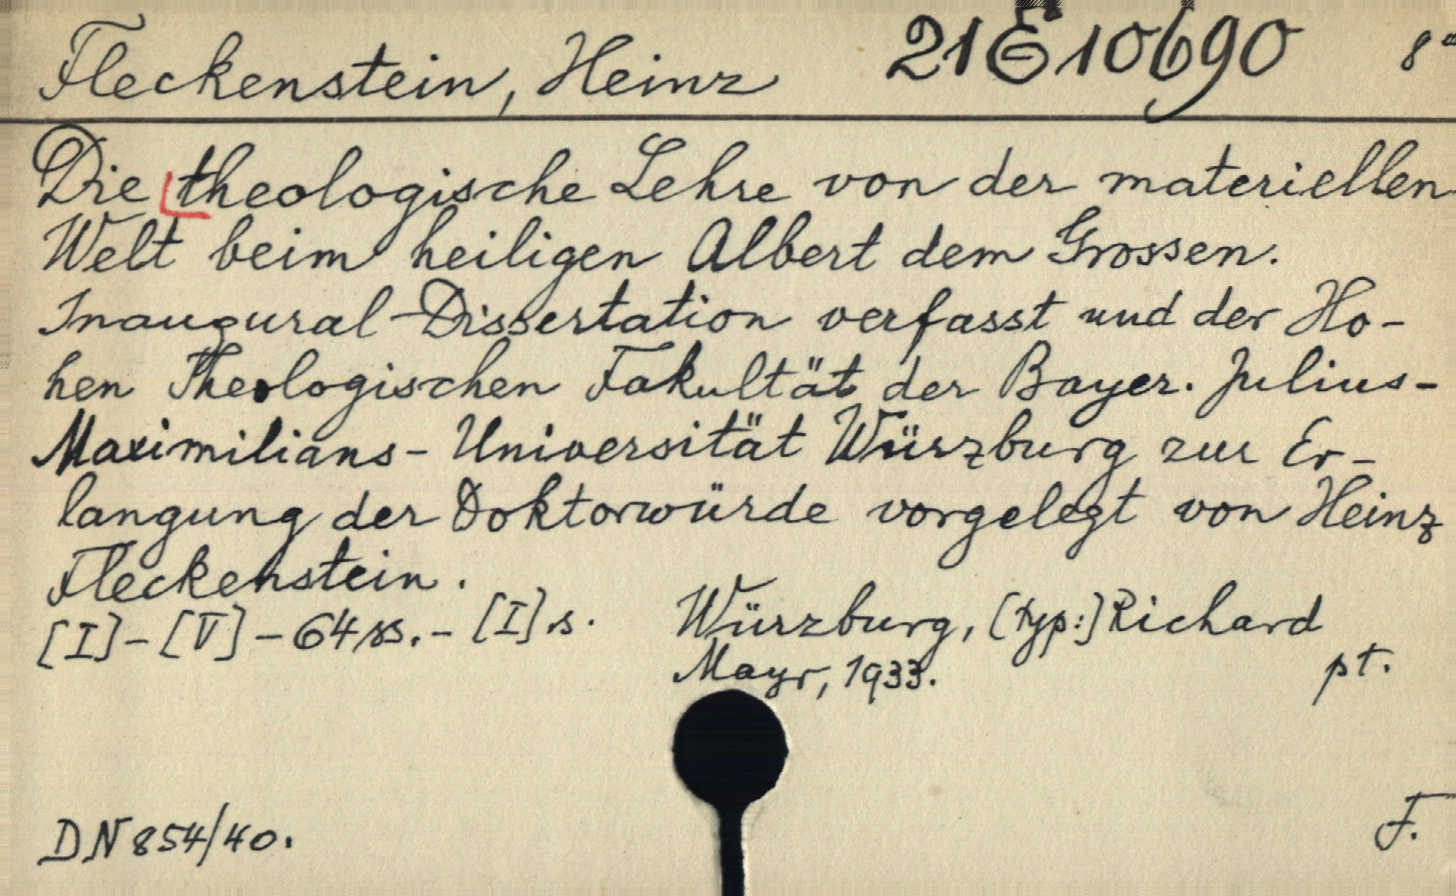 Fleckenstein, Heinz 21 E 10690 8°
Die theologische Lehre von der materiellen
Welt beim heiligen Albert dem Grossen.
Inaugural-Dissertation verfasst und der Ho-
hen Theologischen Fakultät der Bayer. Julius-
Maximilians-Universität Würzburg zur Er-
langung der Doktorwürde vorgelegt von Heinz
Fleckenstein.
[I]-[V]-64 ss.-[I] s. Würzburg, [typ:] Richard
Mayr, 1933. pt.
DN 854/40. F.